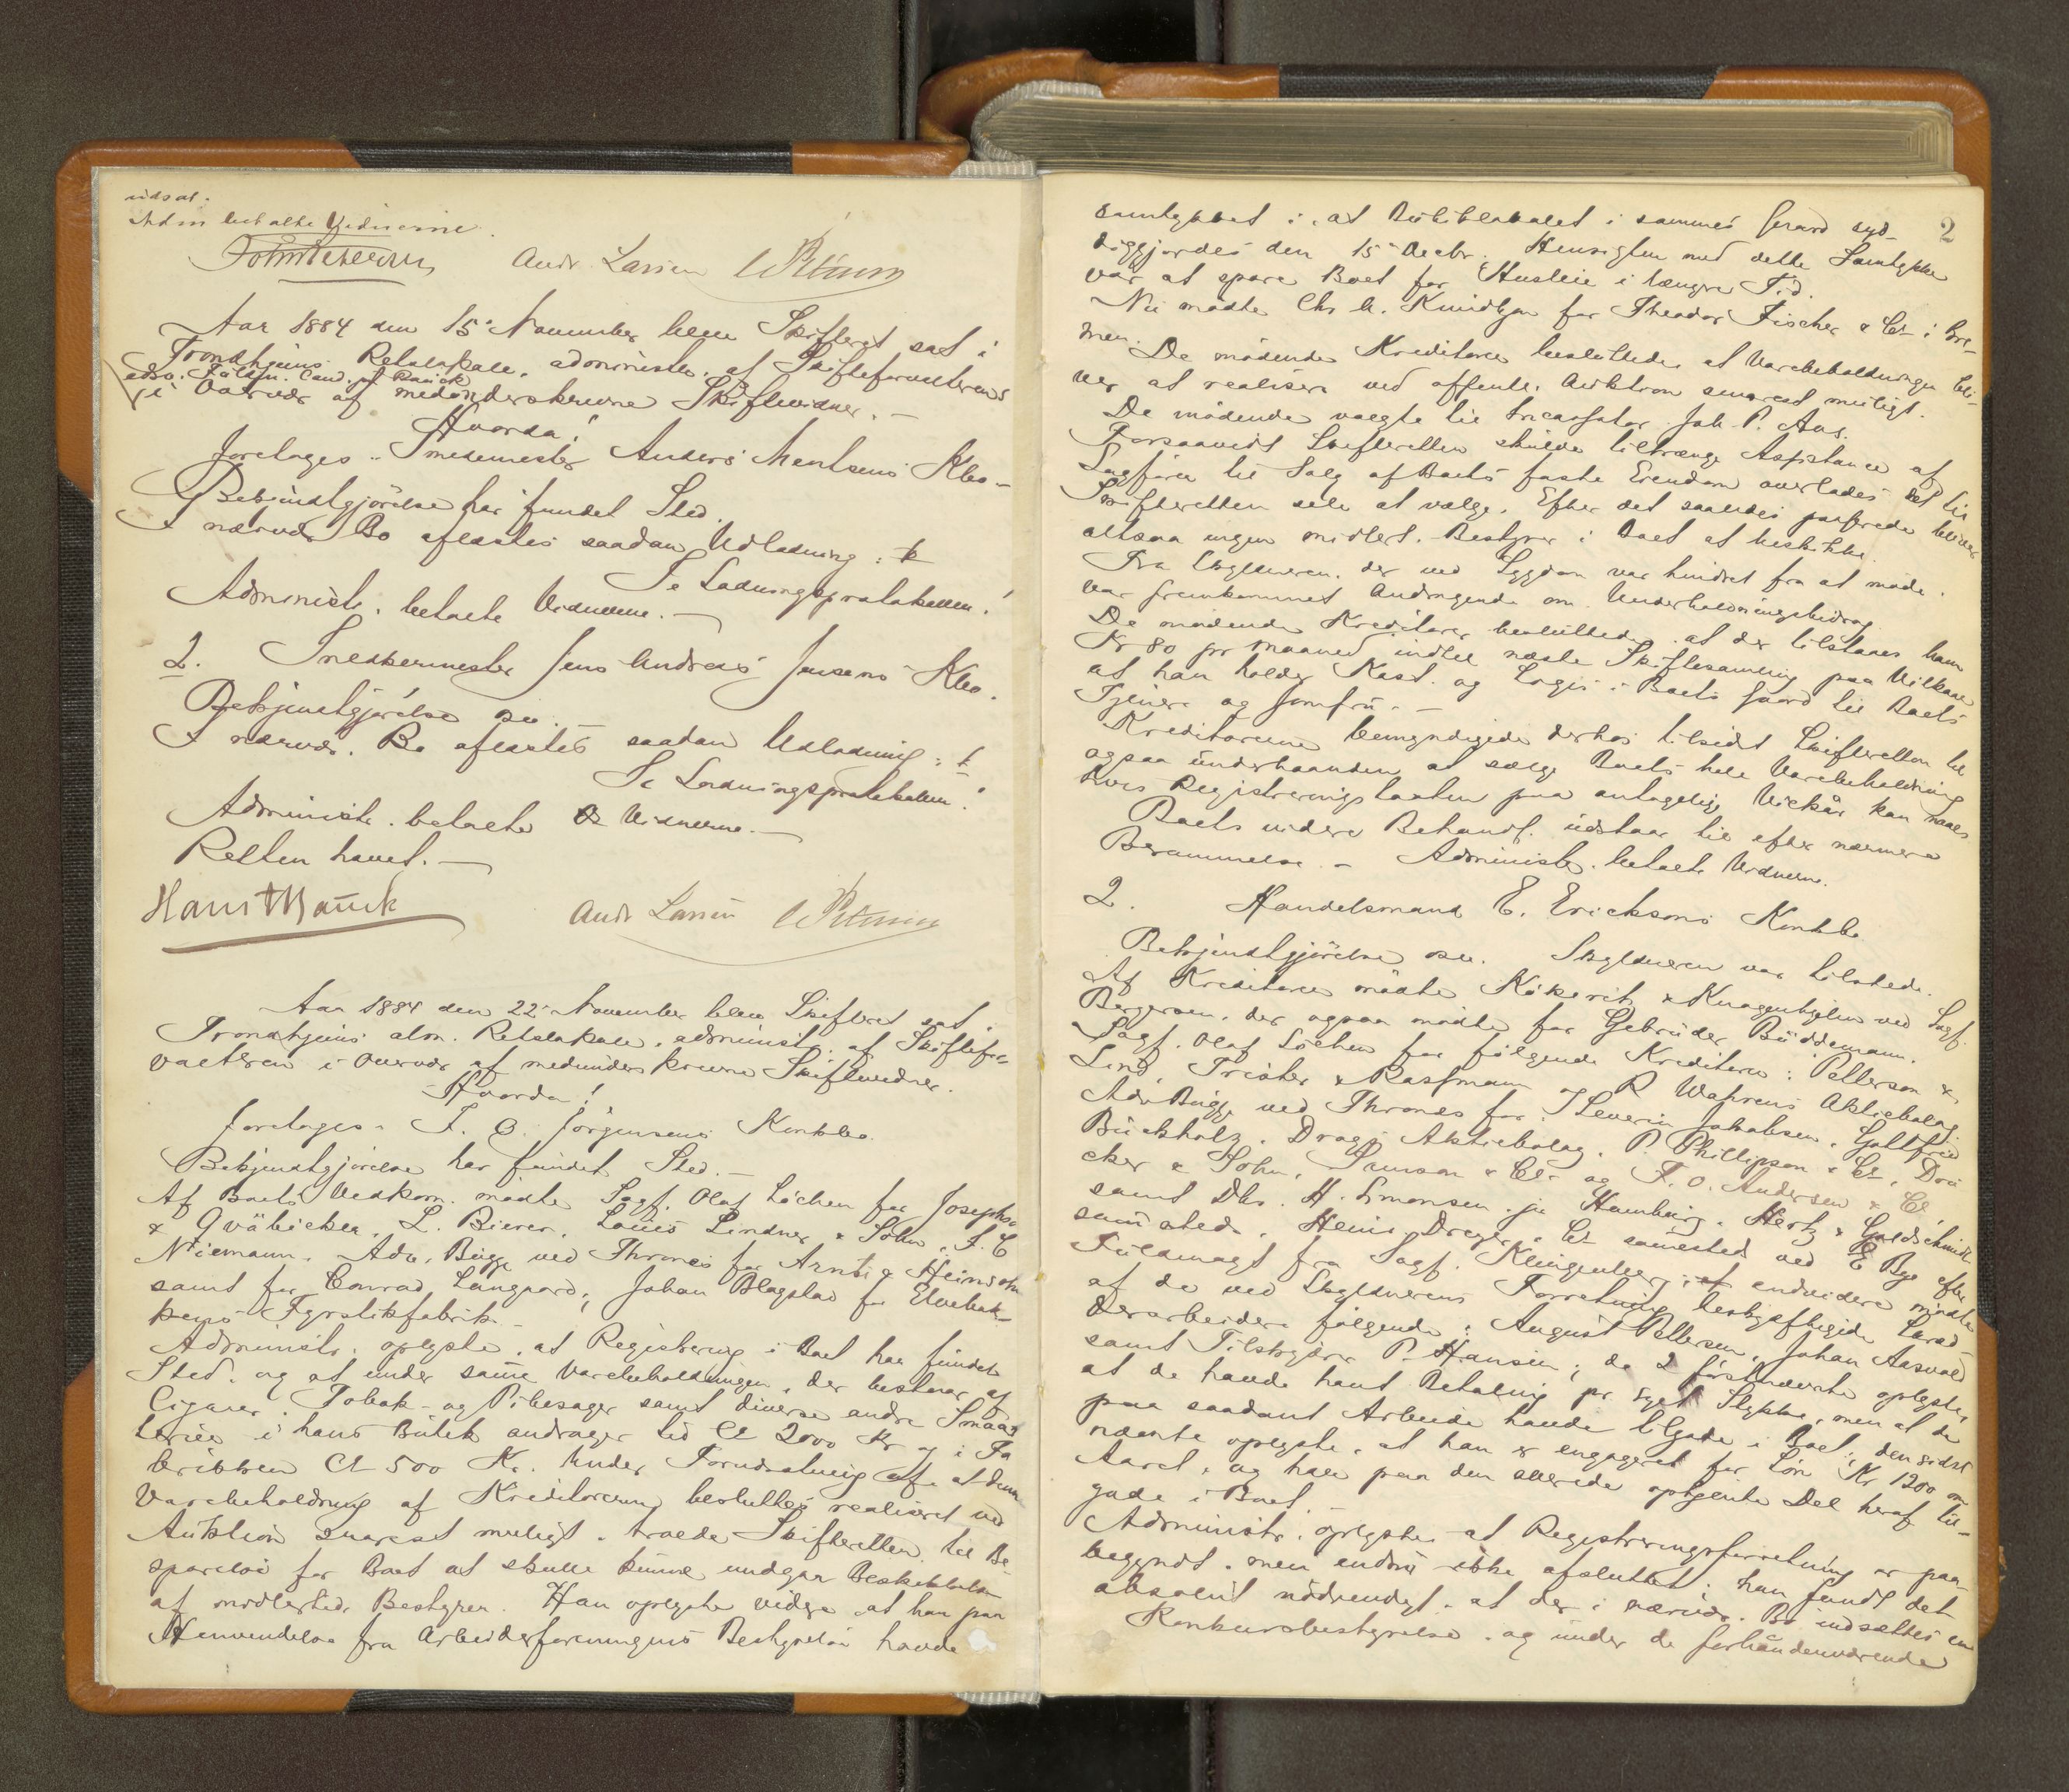 udsat.
Adm betalte Vidnerne.
Andr Larsen
Aar 1884 den 15de November blev Skifteret sat i
Trondhjems Retslokale, administr. af Skifteforvalterens
edsv. Fuldm. Cand. jur. Hauck
i Overvær af medunderskrevne Skiftevidner. -
Hvorda!
foretages. Smedemester Anders Mentsens Kbo-
Bekjendtgjörelse har fundet Sted.
I nærvær. Bo aflastes saadan Udlodning: t
Se Lodningsprotokollen!
Administr. betalte Vidnerne. -
2. Snedkermester Jens Andreas Jensens Kbo.
Bekjendtgjörelse osv. -
I nærvær. Bo aflastes saadan Udlodning: t
Se Lodningsprotokollen!
Administr. betalte Vidnerne. -
Retten hævet. -
Hans Hauck
Andr Larsen
Aar 1884 den 22de November blev Skifteret sat i
Trondhjems alm. Retslokale, administ. af Skiftefor-
valteren i Overvær af medunderskrevne Skiftevidner.
Hvorda!
foretages. F. C. Jörgensens Konkbo.
Bekjendtgjörelse har fundet Sted. -
Af Boets Vedkom. mödte Sagf. Olaf Löchen for Josephs
& Qväbicker, L. Bierer, Louis Lindner & Sohn, F. C
Niemann. Adv. Bugge ved Thrones for Arntz & Heinsohn
samt for Conrad Langaard, Johan Blagstad for Elvebak-
kens Fyrstikfabrik. -
Administr. oplyste, at Registrering i Boet har fundet
Sted, og at under samme Varebeholdningen, der bestaar af
Cigarer, Tobak- og Pibesager samt diverse andre Smaa-
terier i hans Butik andrager til Ct 2000 Kr og i Fa
brikken Ct 500 Kr. Under Forudsætning af at denne
Varebeholdning af Kreditorerne besluttes realiseret ved
Auktion snarest muligt, troede Skifteretten til Be-
sparelse for Boet at skulle kunne undgaa Beskikkelse
af midlertid. Bestyrer. Han oplyste videre at han paa
Henvendelse fra Arbeiderforeningens Bestyrelse havde
2
samtykket i, at Butiklokalet i sammes Gaard ryd-
diggjordes den 15de Decbr. Hensigten med dette Samtykke
var at spare Boet for Husleie i længre Tid.
Nu mödte Chr. A. Knudtzon for Theodor Fischer & Co i Bre-
men.
De mödende Kreditorer besluttede, at Varebeholdningen bli-
ver at realisere ved offentl. Auktion snarest muligt.
De mödende valgte til Incassator Joh. P. Aus.
Forsaavidt Skifteretten skulde tiltrænge Assistance af
Sagförer til Salg af Boets faste Eiendom overlades det til
Skifteretten selv at vælge. Efter det saaledes passerede bliver
altsaa ingen midlert. Bestyrer i Boet at beskikke.
Fra Skyldneren, der ved Sygdom var hindret fra at möde,
var fremkommet Andragende om Underholdningsbidrag.
De mödende Kreditorer besluttede, at der tilstaaes ham
Kr 80 pr Maaned indtil næste Skiftesamling paa Vilkaar
at han holder Kost og Logis i Boets Gaard til Boets
Tjener og Jomfru. -
Kreditorerne bemyndigede derhos tilsidst Skifteretten til
ogsaa underhaanden at sælge Boets hele Varebeholdning
hvis Registreringstaxten paa antagelige Vilkår kan naaes
Boets videre Behandl. udstaar til efter nærmere
Berammelse. - Administr. betalte Vidnerne.
2. Handelsmand E. Ericksons Konkbo
Bekjendtgjörelse osv. Skyldneren var tilstede.
Af Kreditorer mödte Kökeritz & Knaggenhjelm ved Sagf.
Borgersen, der ogsaa mödte for Gebrüder Büddemann.
Sagf. Olaf Löchen for fölgende Kreditorer: Petterson &
Lind, Trister & Rossmann og R Wahrens Aktiebolag.
Adv. Bugge ved Thrones for Severin Jakobsen, Gottfried
Buckholz, Drags Aktiebolag, P. Phillipson & Co, Drä
cker & Sohn, Sunson & Co og F. O. Andersen & Co
samt Dhr. H. Simonsen jr Hamburg, Hertz & Goldschmidt
samested, Heinr. Dreyer & Co samested ved E Bye efter
Fuldmagt fra Sagf. Klingenberg, endvidere mödte
af de ved Skyldnerens Forretning beskjæftigede Skræd-
derarbeidere fölgende: August Pettersen, Johan Aasvold
samt Tilskjærer P. Hansen; de 2 förstnævnte oplyste,
at de havde havt Betaling pr. syet Stykke, men at de
paa saadant Arbeide havde tilgode i Boet, den sidst
nævnte oplyste, at han er engageret for Lön Kr 1200 om
Aaret, og har paa den allerede optjente Del heraf til-
gode i Boet. -
Administr. oplyste at Registreringsforretning er paa-
begyndt, men endnu ikke afsluttet; han fandt det
absolut nödvendigt, at der i nærvær. Bo indsættes en
Konkursbestyrelse, og under de forhåndenværende